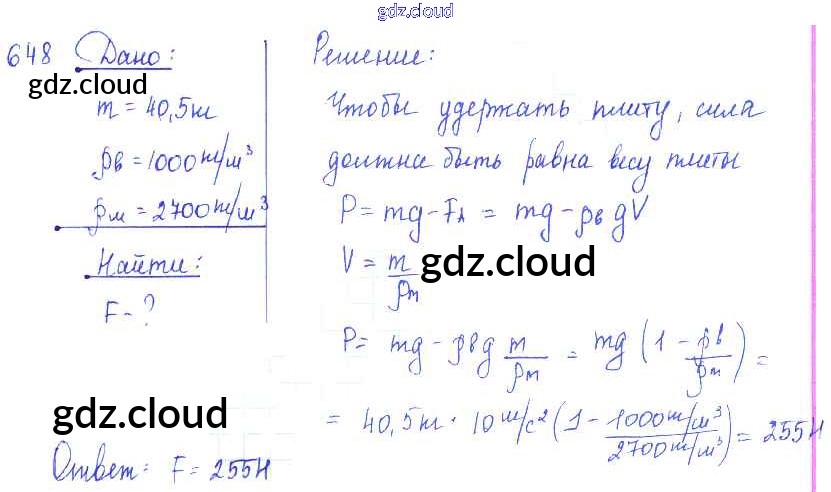 gdz.cloud
648 Дано:
gdz.cloud
m = 40,5кг
ρв = 1000кг/м³
ρм = 2700кг/м³
Найти:
F - ?
Решение:
Чтобы удержать плиту, сила
должна быть равна весу плиты
P = mg - FА = mg - ρв gV
V = m/ρm
gdz.cloud
P = mg - ρвg m/ρm = mg (1 - ρв/ρm) =
= 40,5кг · 10 м/с² (1 - 1000кг/м³/2700кг/м³) = 255Н
gdz.cloud
Ответ: F = 255Н